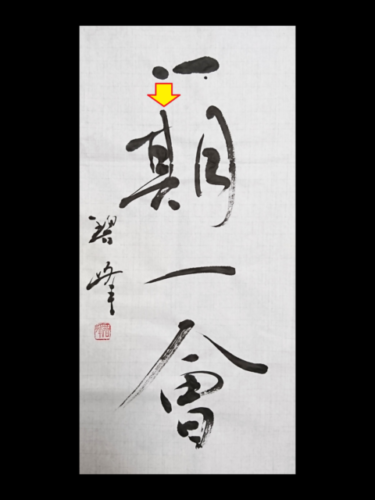 一期一會
碧峰